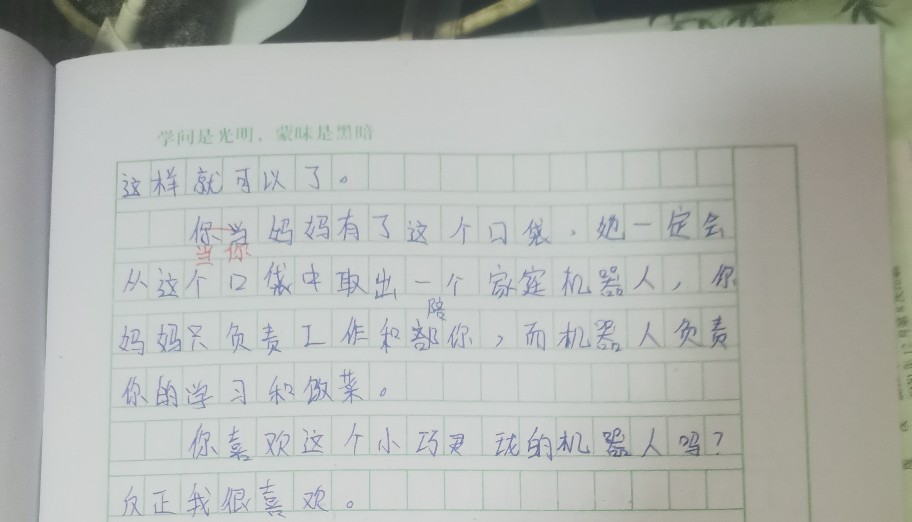 学问是光明，蒙昧是黑暗
这样就可以了。
你当妈妈有了这个口袋，她一定会
当你
从这个口袋中取出一个家庭机器人，你
陪
妈妈只负责工作和部你，而机器人负责
你的学习和做菜。
你喜欢这个小巧君珑的机器人吗？
反正我很喜欢。